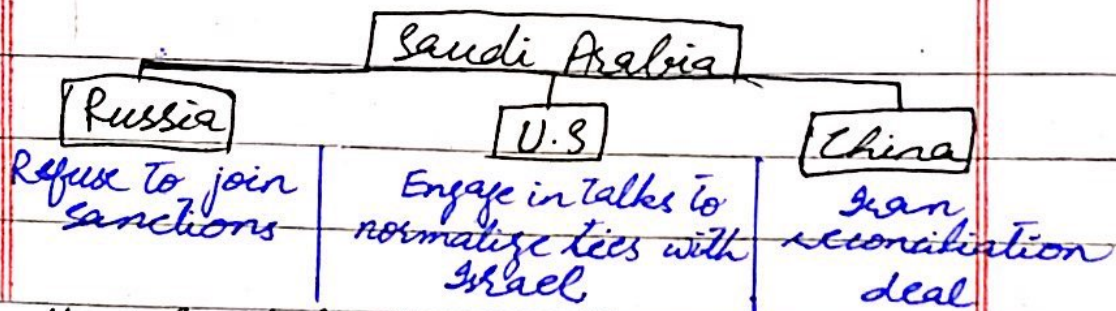 Saudi Arabia
Russia
U.S
China
Refuse to join
sanctions
Engage in talks to
normalize ties with
Israel
Iran
reconciliation
deal